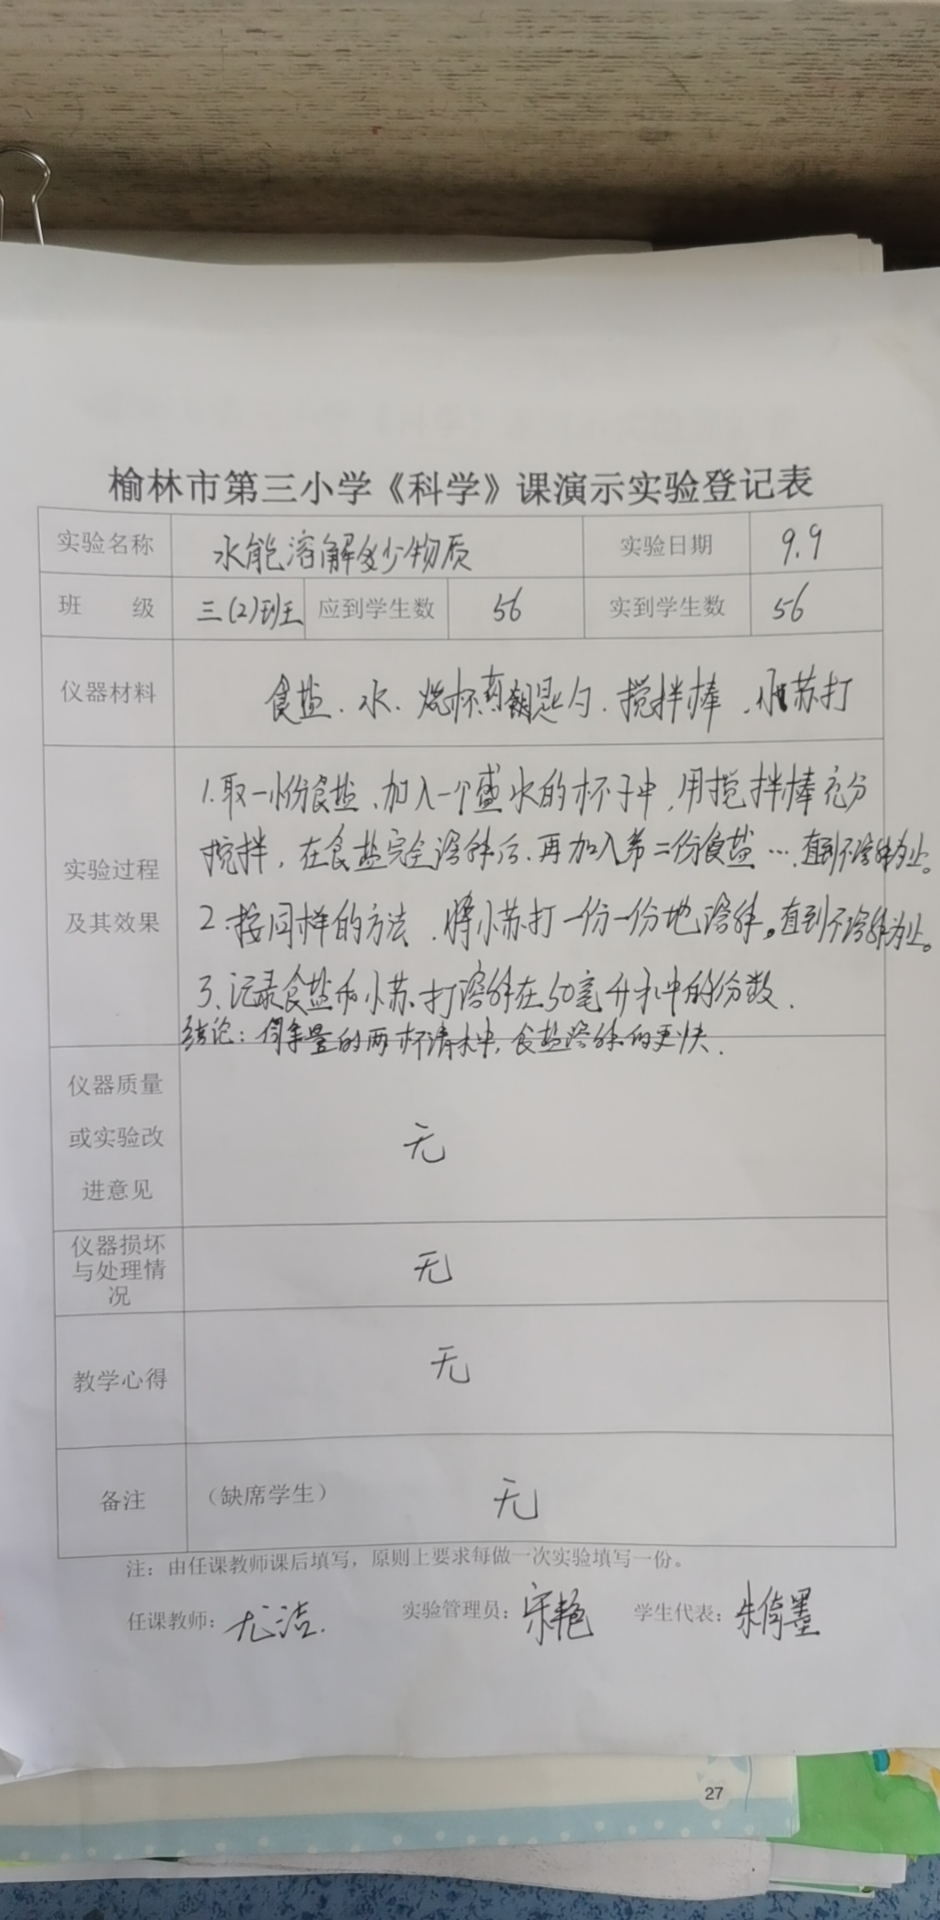 榆林市第三小学《科学》课演示实验登记表
实验名称 水能溶解多少物质 实验日期 9.9
班 级 三(2)班 应到学生数 56 实到学生数 56
仪器材料 食盐、水、烧杯、药匙、搅拌棒、小苏打
1.取一小份食盐、加入一个盛水的杯子中,用搅拌棒充分
搅拌,在食盐完全溶解后、再加入第二份食盐…直到不溶解为止。
实验过程
及其效果
2.按同样的方法、将小苏打一份一份地溶解。直到不溶解为止。
3、记录食盐和小苏打溶解在50毫升水中的份数.
结论:同等量的两杯清水中,食盐溶解的更快.
仪器质量
或实验改
进意见
无
仪器损坏
与处理情
况
无
教学心得 无
备注 (缺席学生) 无
注:由任课教师课后填写,原则上要求每做一次实验填写一份。
任课教师: 尤洁. 实验管理员: 宋艳 学生代表: 朱倚墨
27